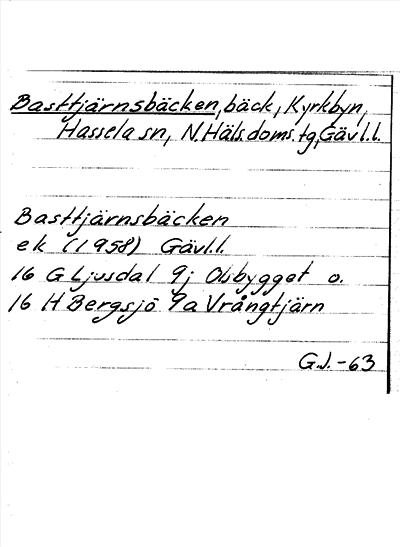 Basttjärnsbäcken, bäck, Kyrkbyn,
Hassela sn, N.Häls.doms.tg, Gävl.l.
Basttjärnsbäcken
ek (1958) Gävl.l.
16 G Ljusdal 9j Olsbygget o.
16 H Bergsjö 9a Vrångtjärn
G.J.-63